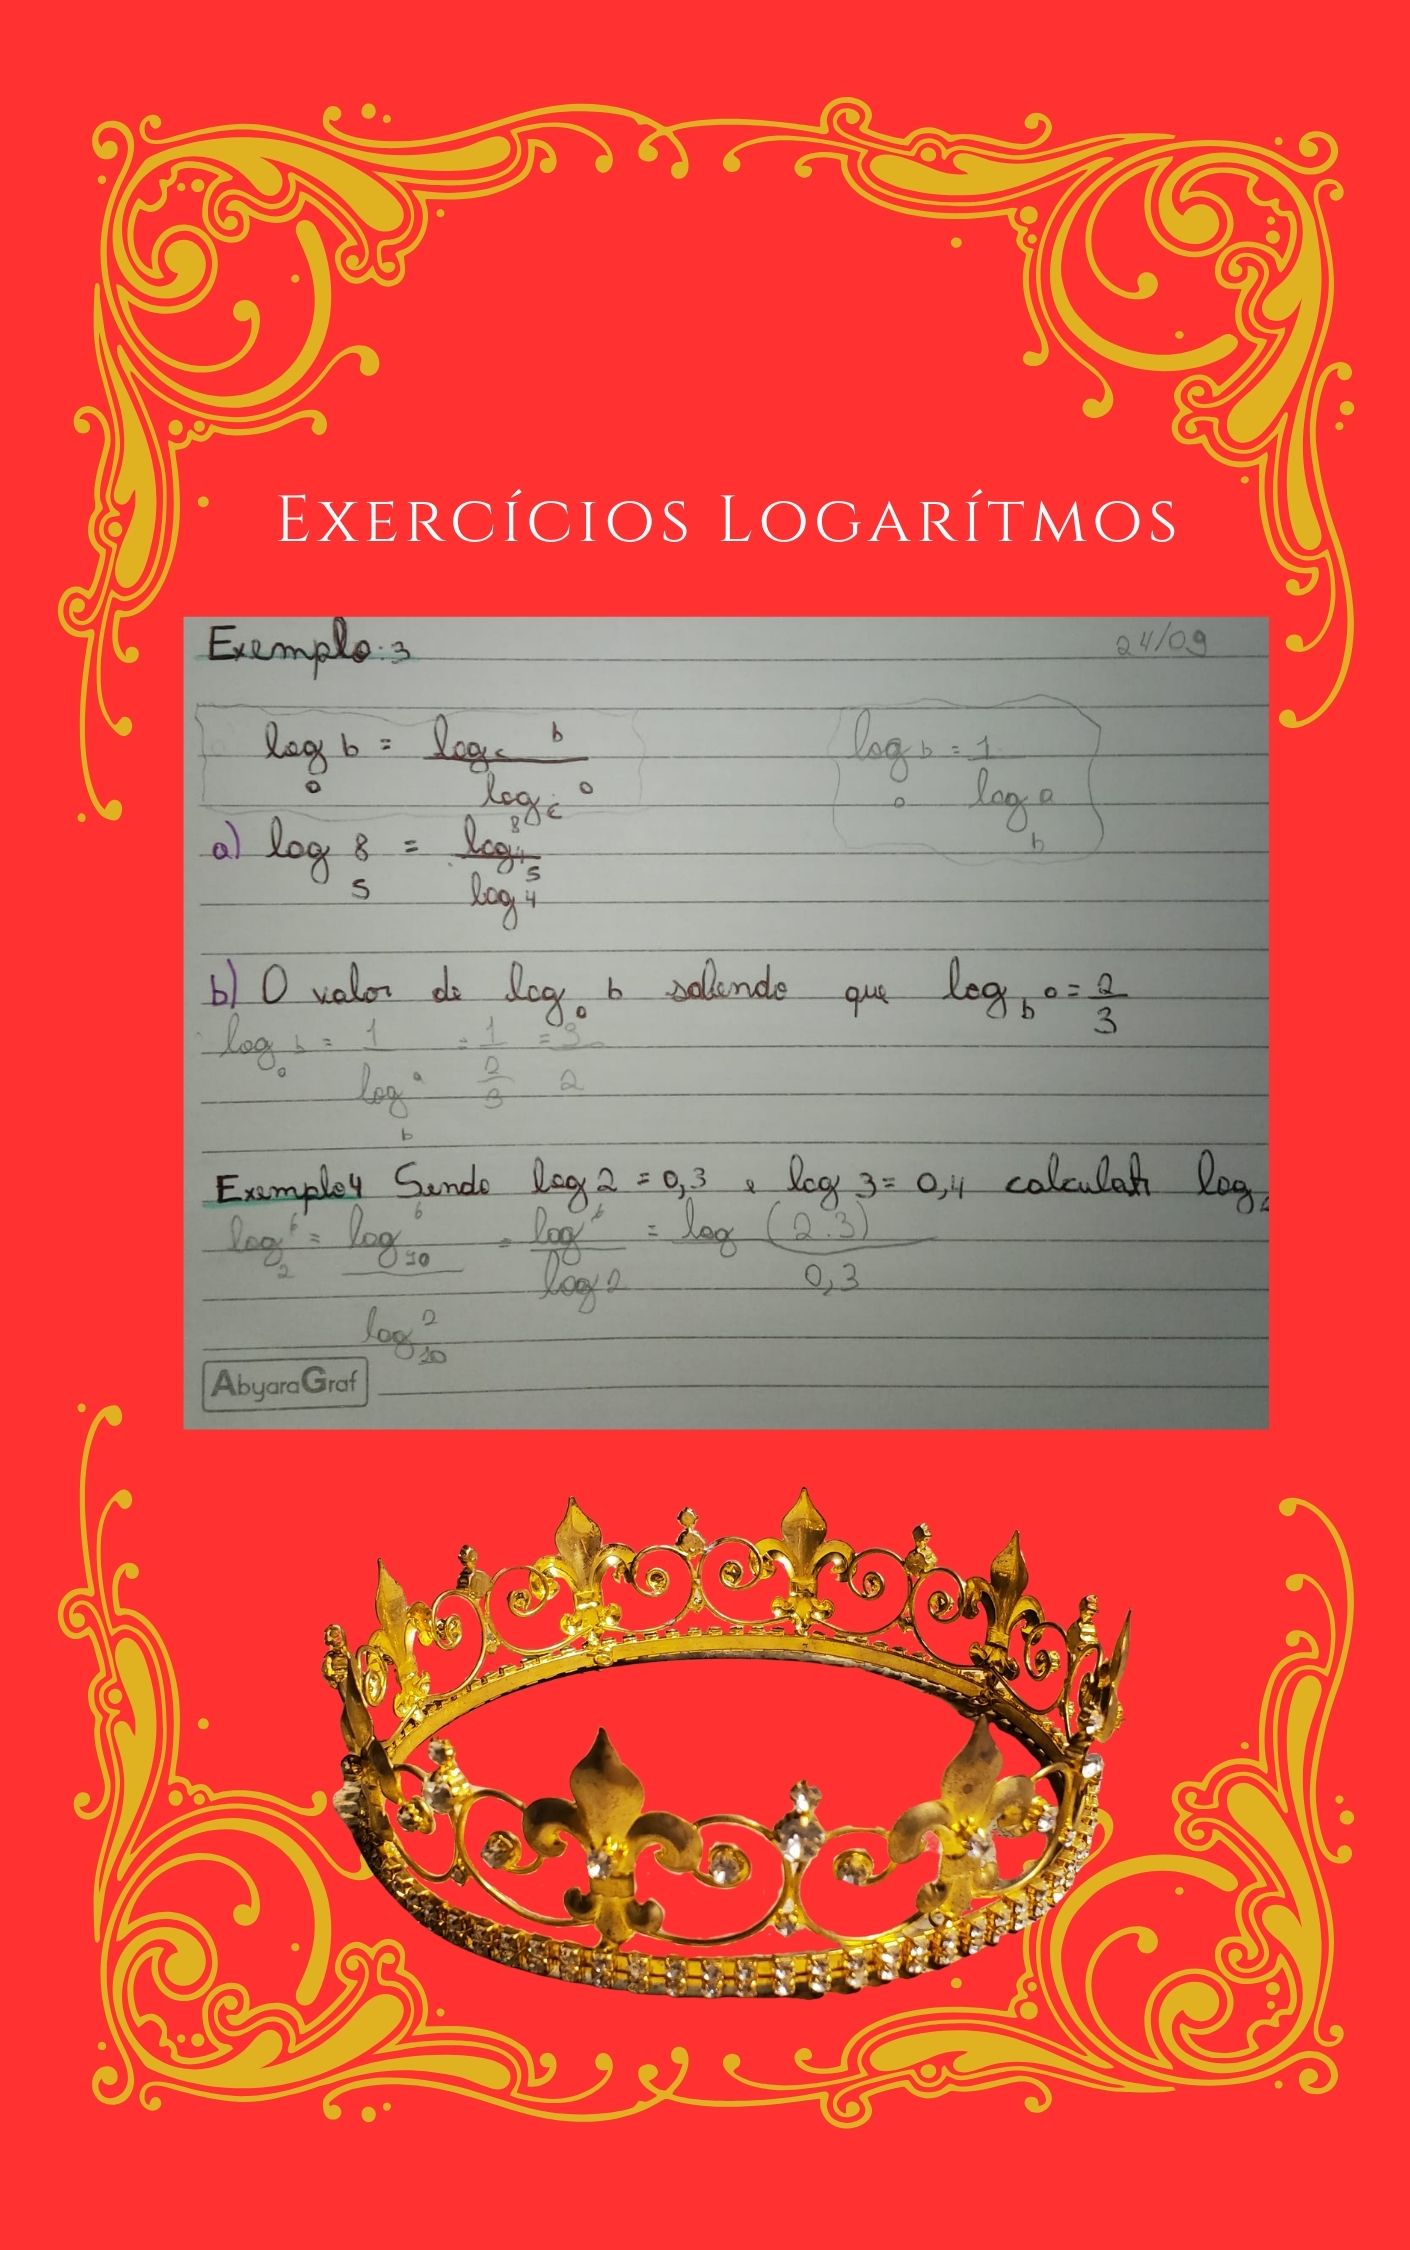 Exercícios Logarítmos
Exemplo: 3 24/09
log_a b = log_c b / log_c a log_a b = 1 / log_b a
a) log_5 8 = log_4 8 / log_4 5
b) O valor de log_a b sabendo que log_b a = 2/3
log_a b = 1 / log_b a = 1 / (2/3) = 3/2
Exemplo 4 Sendo log 2 = 0,3 e log 3 = 0,4 calcular log
log_2 6 = log_10 6 / log_10 2 = log 6 / log 2 = log (2.3) / 0,3
AbyaraGraf